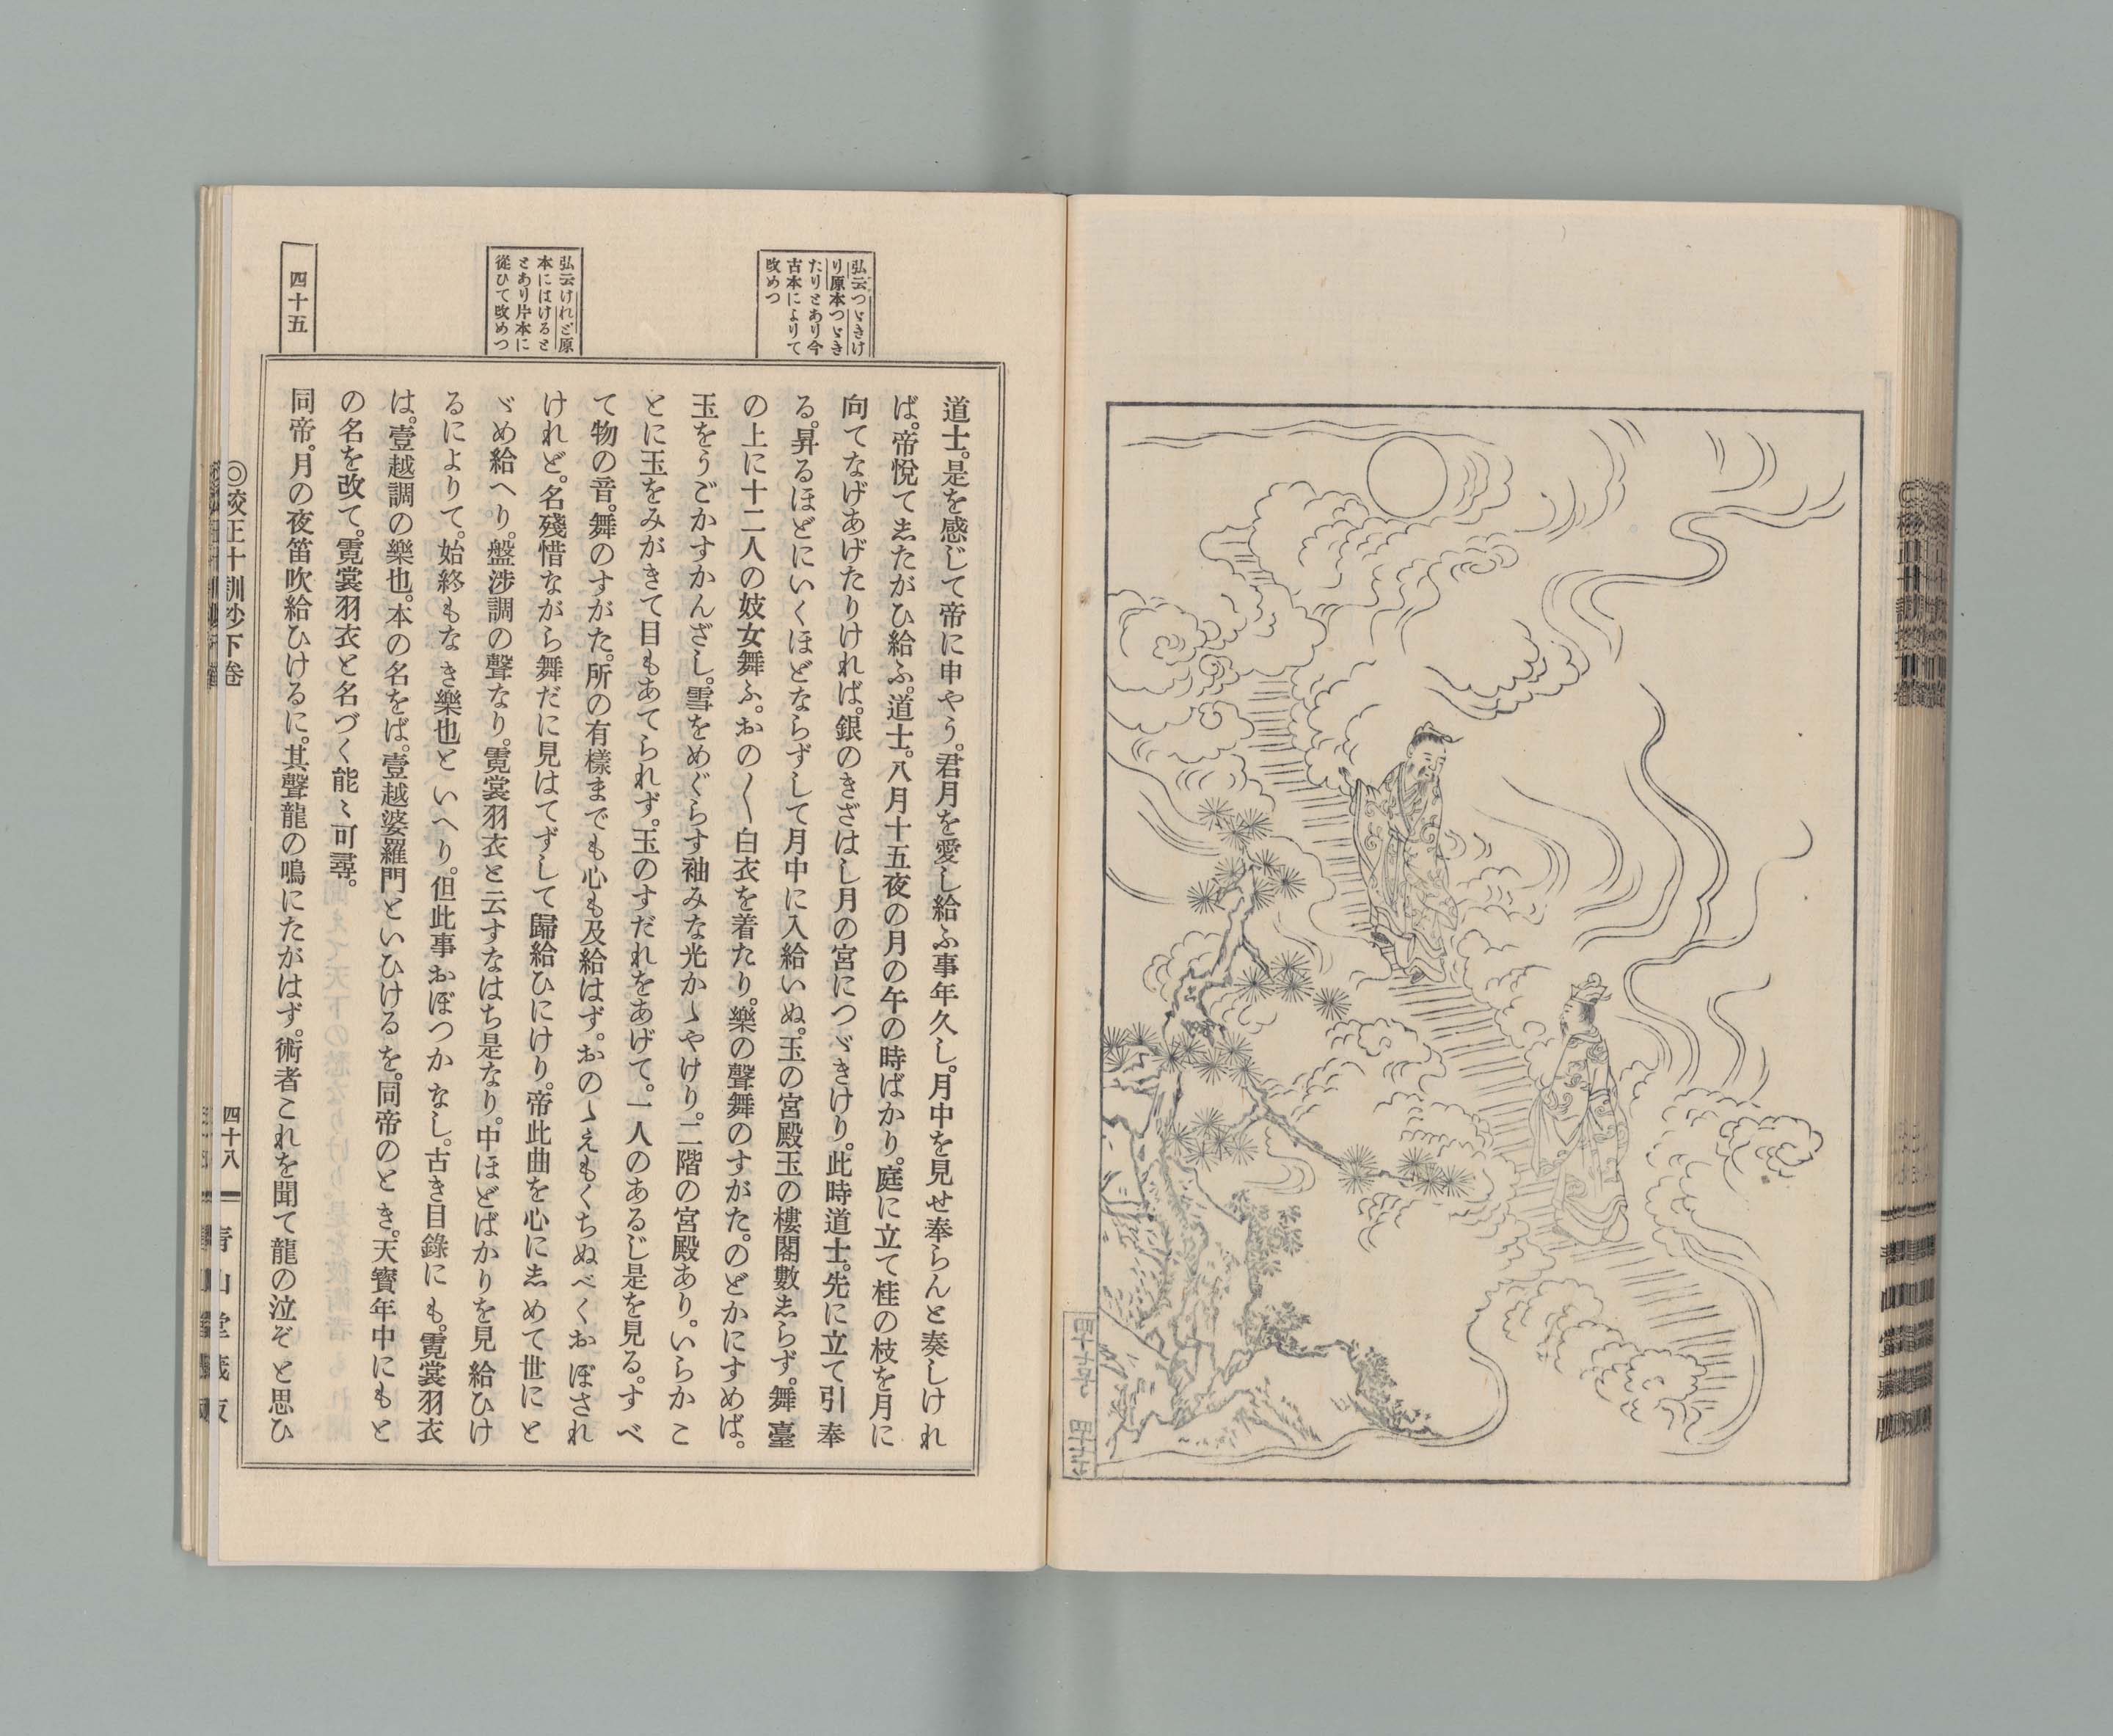 弘云つゞきけ
り原本つゞき
たりとあり今
古本によりて
改めつ
弘云けれど原
本にはけると
とあり片本に
従ひて改めつ
四十五
道士。是を感じて帝に申やう。君月を愛し給ふ事年久し。月中を見せ奉らんと奏しけれ
ば。帝悦て志たがひ給ふ。道士。八月十五夜の月の午の時ばかり。庭に立て桂の枝を月に
向てなげあげたりければ。銀のきざはし月の宮につゞきけり。此時道士。先に立て引奉
る。昇るほどにいくほどならずして月中に入給いぬ。玉の宮殿玉の樓閣數志らず。舞臺
の上に十二人の妓女舞ふ。おの〱白衣を着たり。樂の聲舞のすがた。のどかにすめば。
玉をうごかすかんざし。雪をめぐらす袖みな光かゝやけり。二階の宮殿あり。いらかこ
とに玉をみがきて目もあてられず。玉のすだれをあげて。一人のあるじ是を見る。すべ
て物の音。舞のすがた。所の有樣までも心も及給はず。おのゝえもくちぬべくおぼされ
けれど。名殘惜ながら舞だに見はてずして歸給ひにけり。帝此曲を心に志めて世にと
ゞめ給へり。盤渉調の聲なり。霓裳羽衣と云すなはち是なり。中ほどばかりを見給ひけ
るによりて。始終もなき樂也といへり。但此事おぼつかなし。古き目錄にも。霓裳羽衣
は。壹越調の樂也。本の名をば。壹越婆羅門といひけるを。同帝のとき。天寶年中にもと
の名を改て。霓裳羽衣と名づく能〻可尋。
同帝。月の夜笛吹給ひけるに。其聲龍の鳴にたがはず。術者これを聞て龍の泣ぞと思ひ
◎校正十訓抄下卷
四十八
青山堂藏版